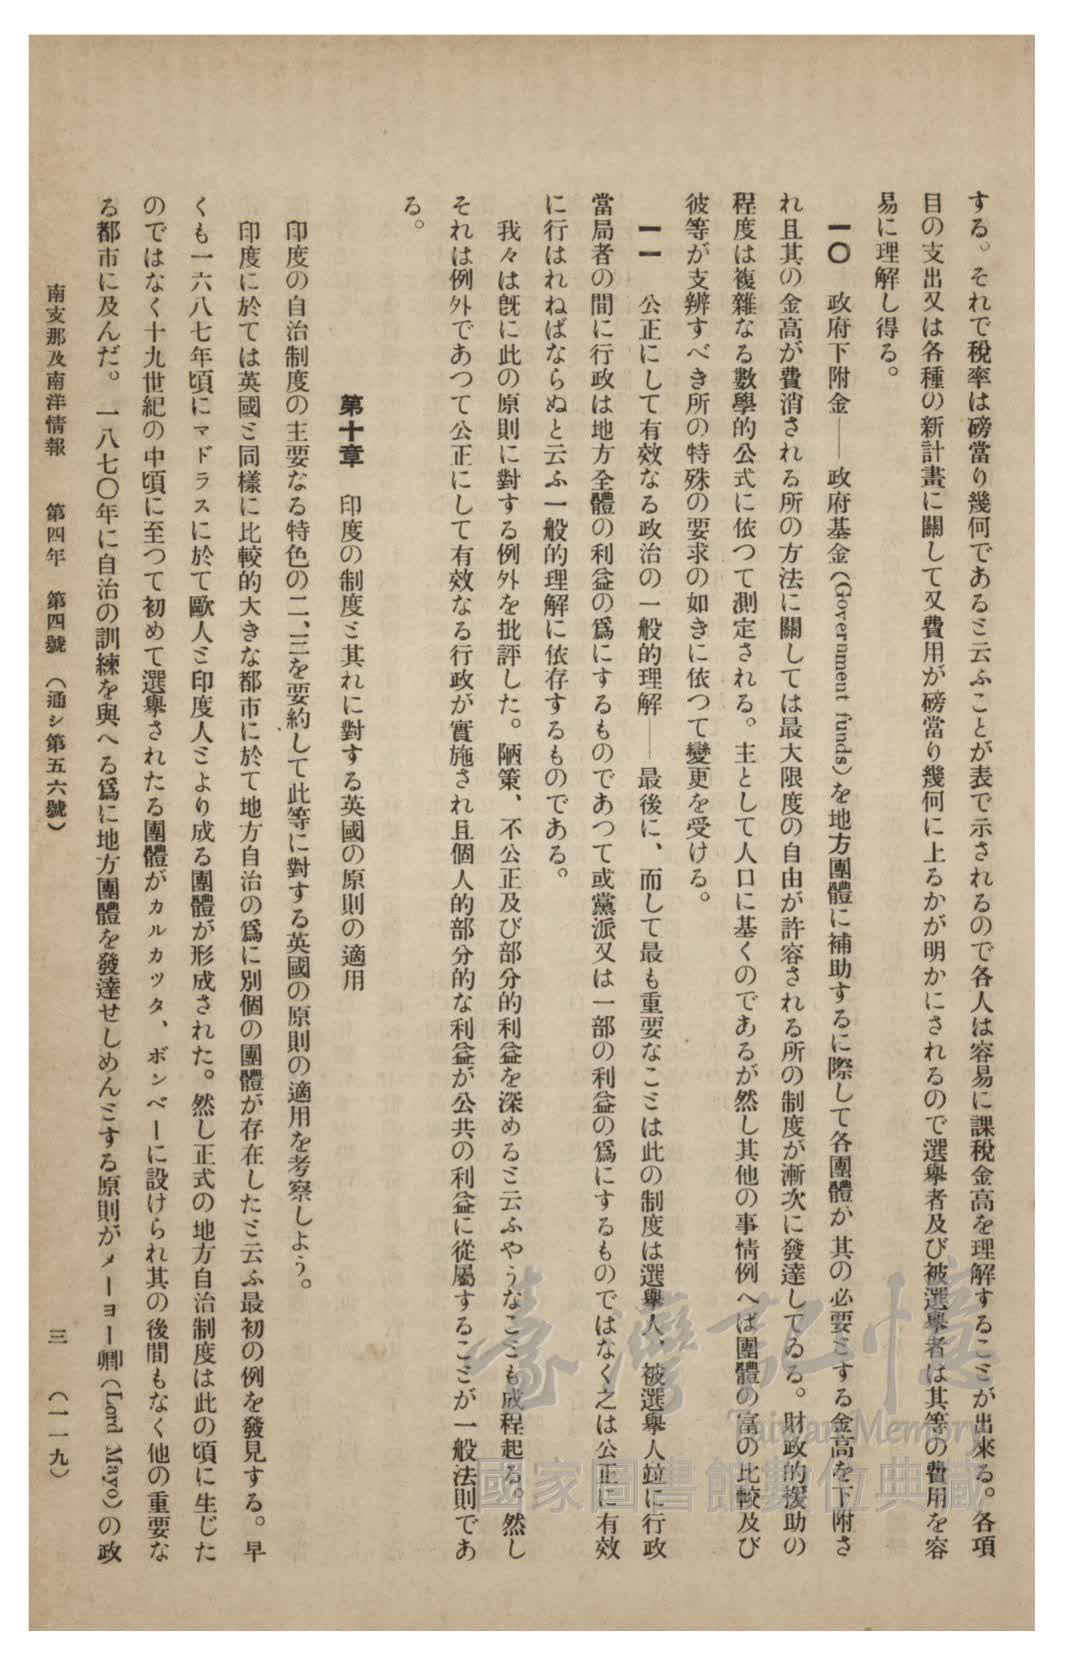 する。それで稅率は磅當り幾何であると云ふことが表で示されるので各人は容易に課稅金高を理解することが出來る。各項
目の支出又は各種の新計畫に關して又費用が磅當り幾何に上るかが明かにされるので選擧者及び被選擧者は其等の費用を容
易に理解し得る。
一〇　政府下附金――政府基金(Government funds)を地方團體に補助するに際して各團體が其の必要とする金高を下附さ
れ且其の金高が費消される所の方法に關しては最大限度の自由が許容される所の制度が漸次に發達してゐる。財政的援助の
程度は複雜なる數學的公式に依つて測定される。主として人口に基くのであるが然し其他の事情例へば團體の富の比較及び
彼等が支辨すべき所の特殊の要求の如きに依つて變更を受ける。
一一　公正にして有效なる政治の一般的理解――最後に、而して最も重要なことは此の制度は選擧人、被選擧人竝に行政
當局者の間に行政は地方全體の利益の爲にするものであつて或黨派又は一部の利益の爲にするものではなく之は公正に有效
に行はれねばならぬと云ふ一般的理解に依存するものである。
我々は旣に此の原則に對する例外を批評した。陋策、不公正及び部分的利益を深めると云ふやうなことも成程起る。然し
それは例外であつて公正にして有效なる行政が實施され且個人的部分的な利益が公共の利益に從屬することが一般法則であ
る。
第十章　印度の制度と其れに對する英國の原則の適用
印度の自治制度の主要なる特色の二、三を要約して此等に對する英國の原則の適用を考察しよう。
印度に於ては英國と同樣に比較的大きな都市に於て地方自治の爲に別個の團體が存在したと云ふ最初の例を發見する。早
くも一六八七年頃にマドラスに於て歐人と印度人とより成る團體が形成された。然し正式の地方自治制度は此の頃に生じた
のではなく十九世紀の中頃に至つて初めて選擧されたる團體がカルカツタ、ボンベーに設けられ其の後間もなく他の重要な
る都市に及んだ。一八七〇年に自治の訓練を與へる爲に地方團體を發達せしめんとする原則がメーヨー卿(Lord Mayo)の政
南支那及南洋情報　第四年　第四號　(通シ第五六號)　三　(一一九)
臺灣記憶
Taiwan Memory
國家圖書館數位典藏